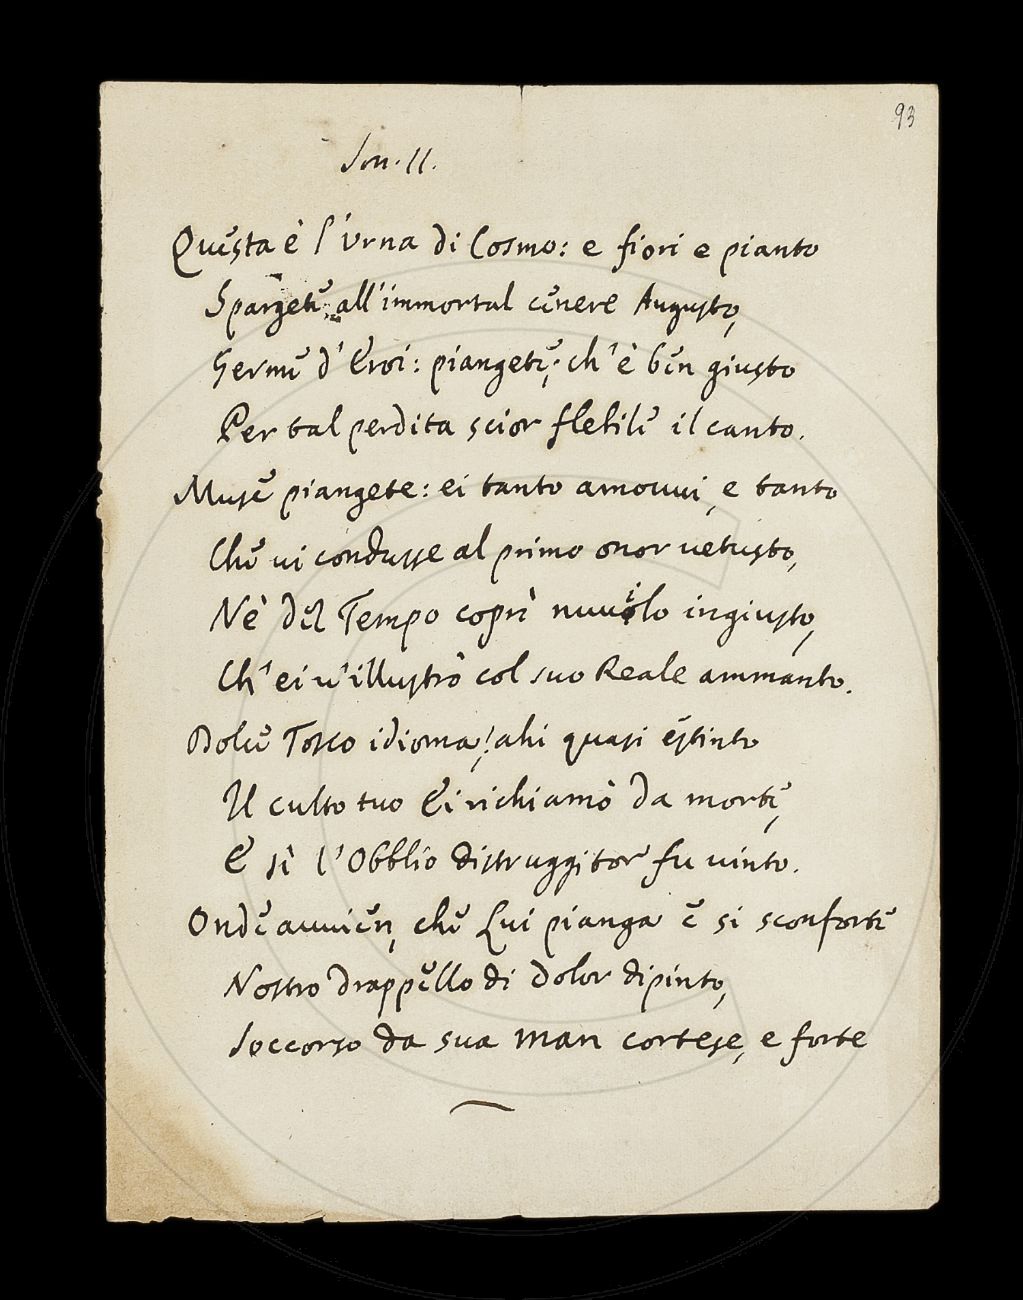 93
Son. II.
Questa è l'Urna di Cosmo: e fiori e pianto
Spargete all'immortal cenere Augusto,
Germe d'Eroi: piangete, ch'è ben giusto
Per tal perdita scior flebile il canto.
Muse piangete: ei tanto amovvi, e tanto
Che vi condusse al primo onor vetusto,
Nè del Tempo coprì nuvilo ingiusto,
Ch'ei v'illustrò col suo Reale ammanto.
Dolce Tosco idioma, ahi quasi estinto
Il culto tuo Ei richiamò da morte,
E sì l'Obblio distruggitor fu vinto.
Onde avvien, che Lui pianga e si sconforte
Nostro drappello di dolor dipinto,
Soccorso da sua man cortese, e forte